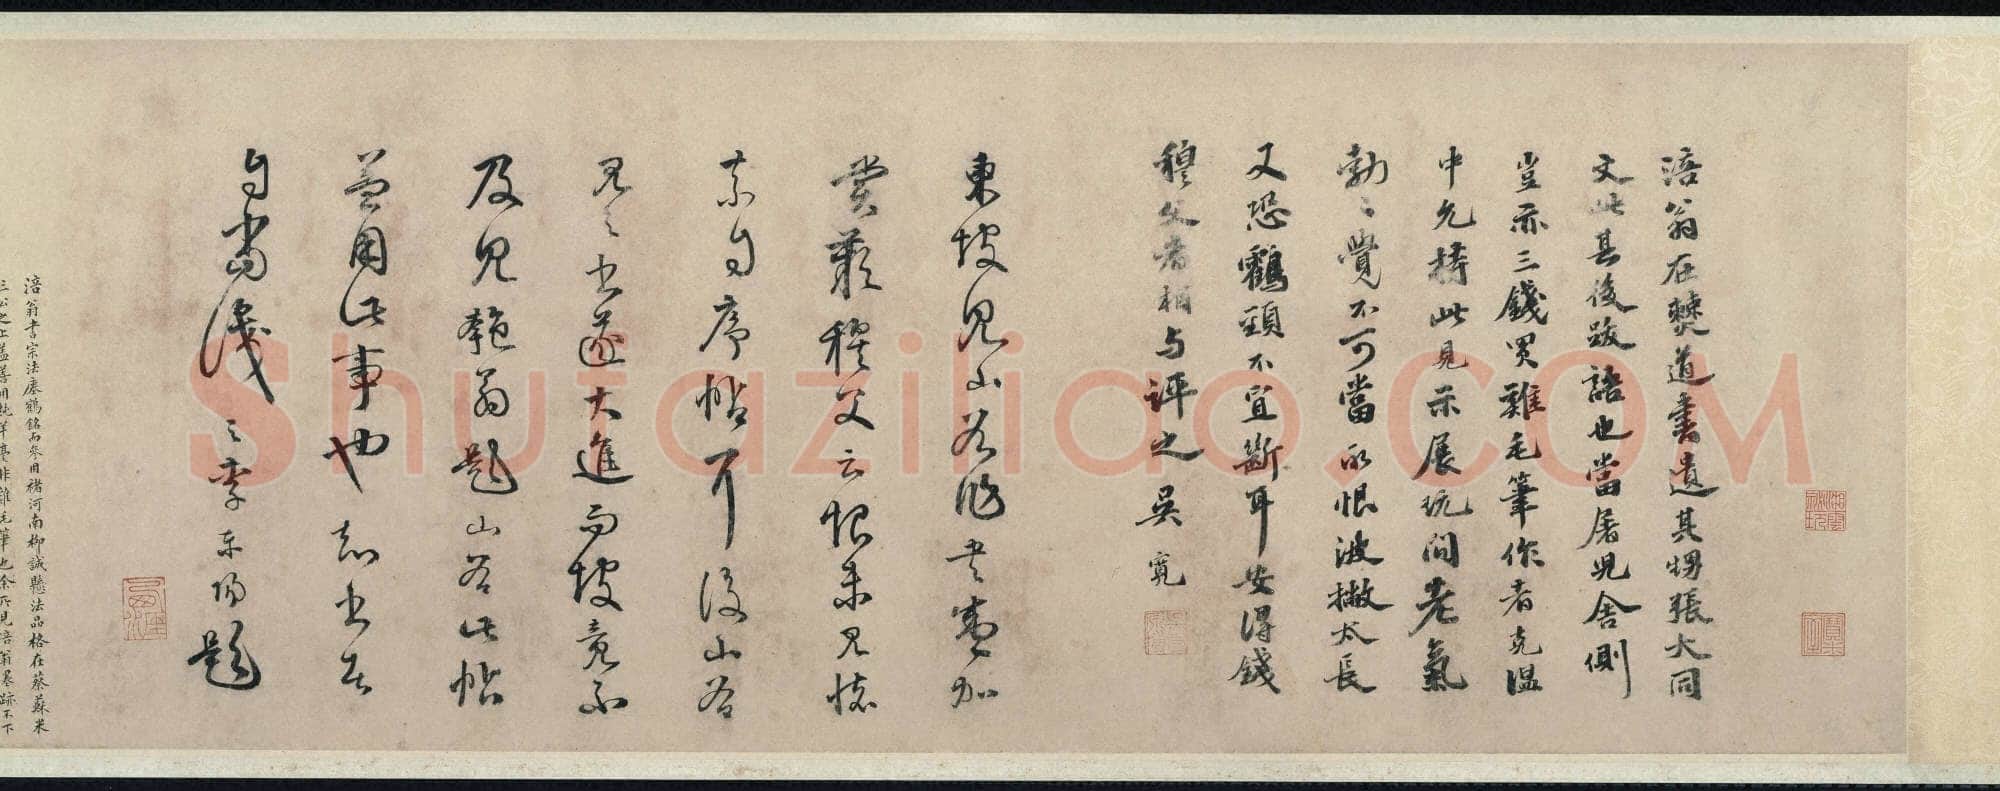 涪翁在僰道書遺其甥張大同
文此其後跋語也當屠兒舍側
豈亦三錢買雞毛筆作者克溫
中允持此見示展玩間老氣
勃〻覺不可當所恨波撇太長
又恐鶴頸不宜斷耳安得錢
穆父者相与評之吳寬
東坡見山谷作草書亟加
賞歎穆父云恨未見懷
素自序帖耳後山谷
見之書遂大進而坡竟不
及見匏翁題山谷此帖
蓋用此事也知書者
自當識之李東陽題
涪翁書宗法瘞鶴銘而參用褚河南柳誠懸法品格在蔡蘇米
三公之上蓋善用純羊毫非雞毛筆也余所見涪翁墨跡不下
Shufaziliao.COM